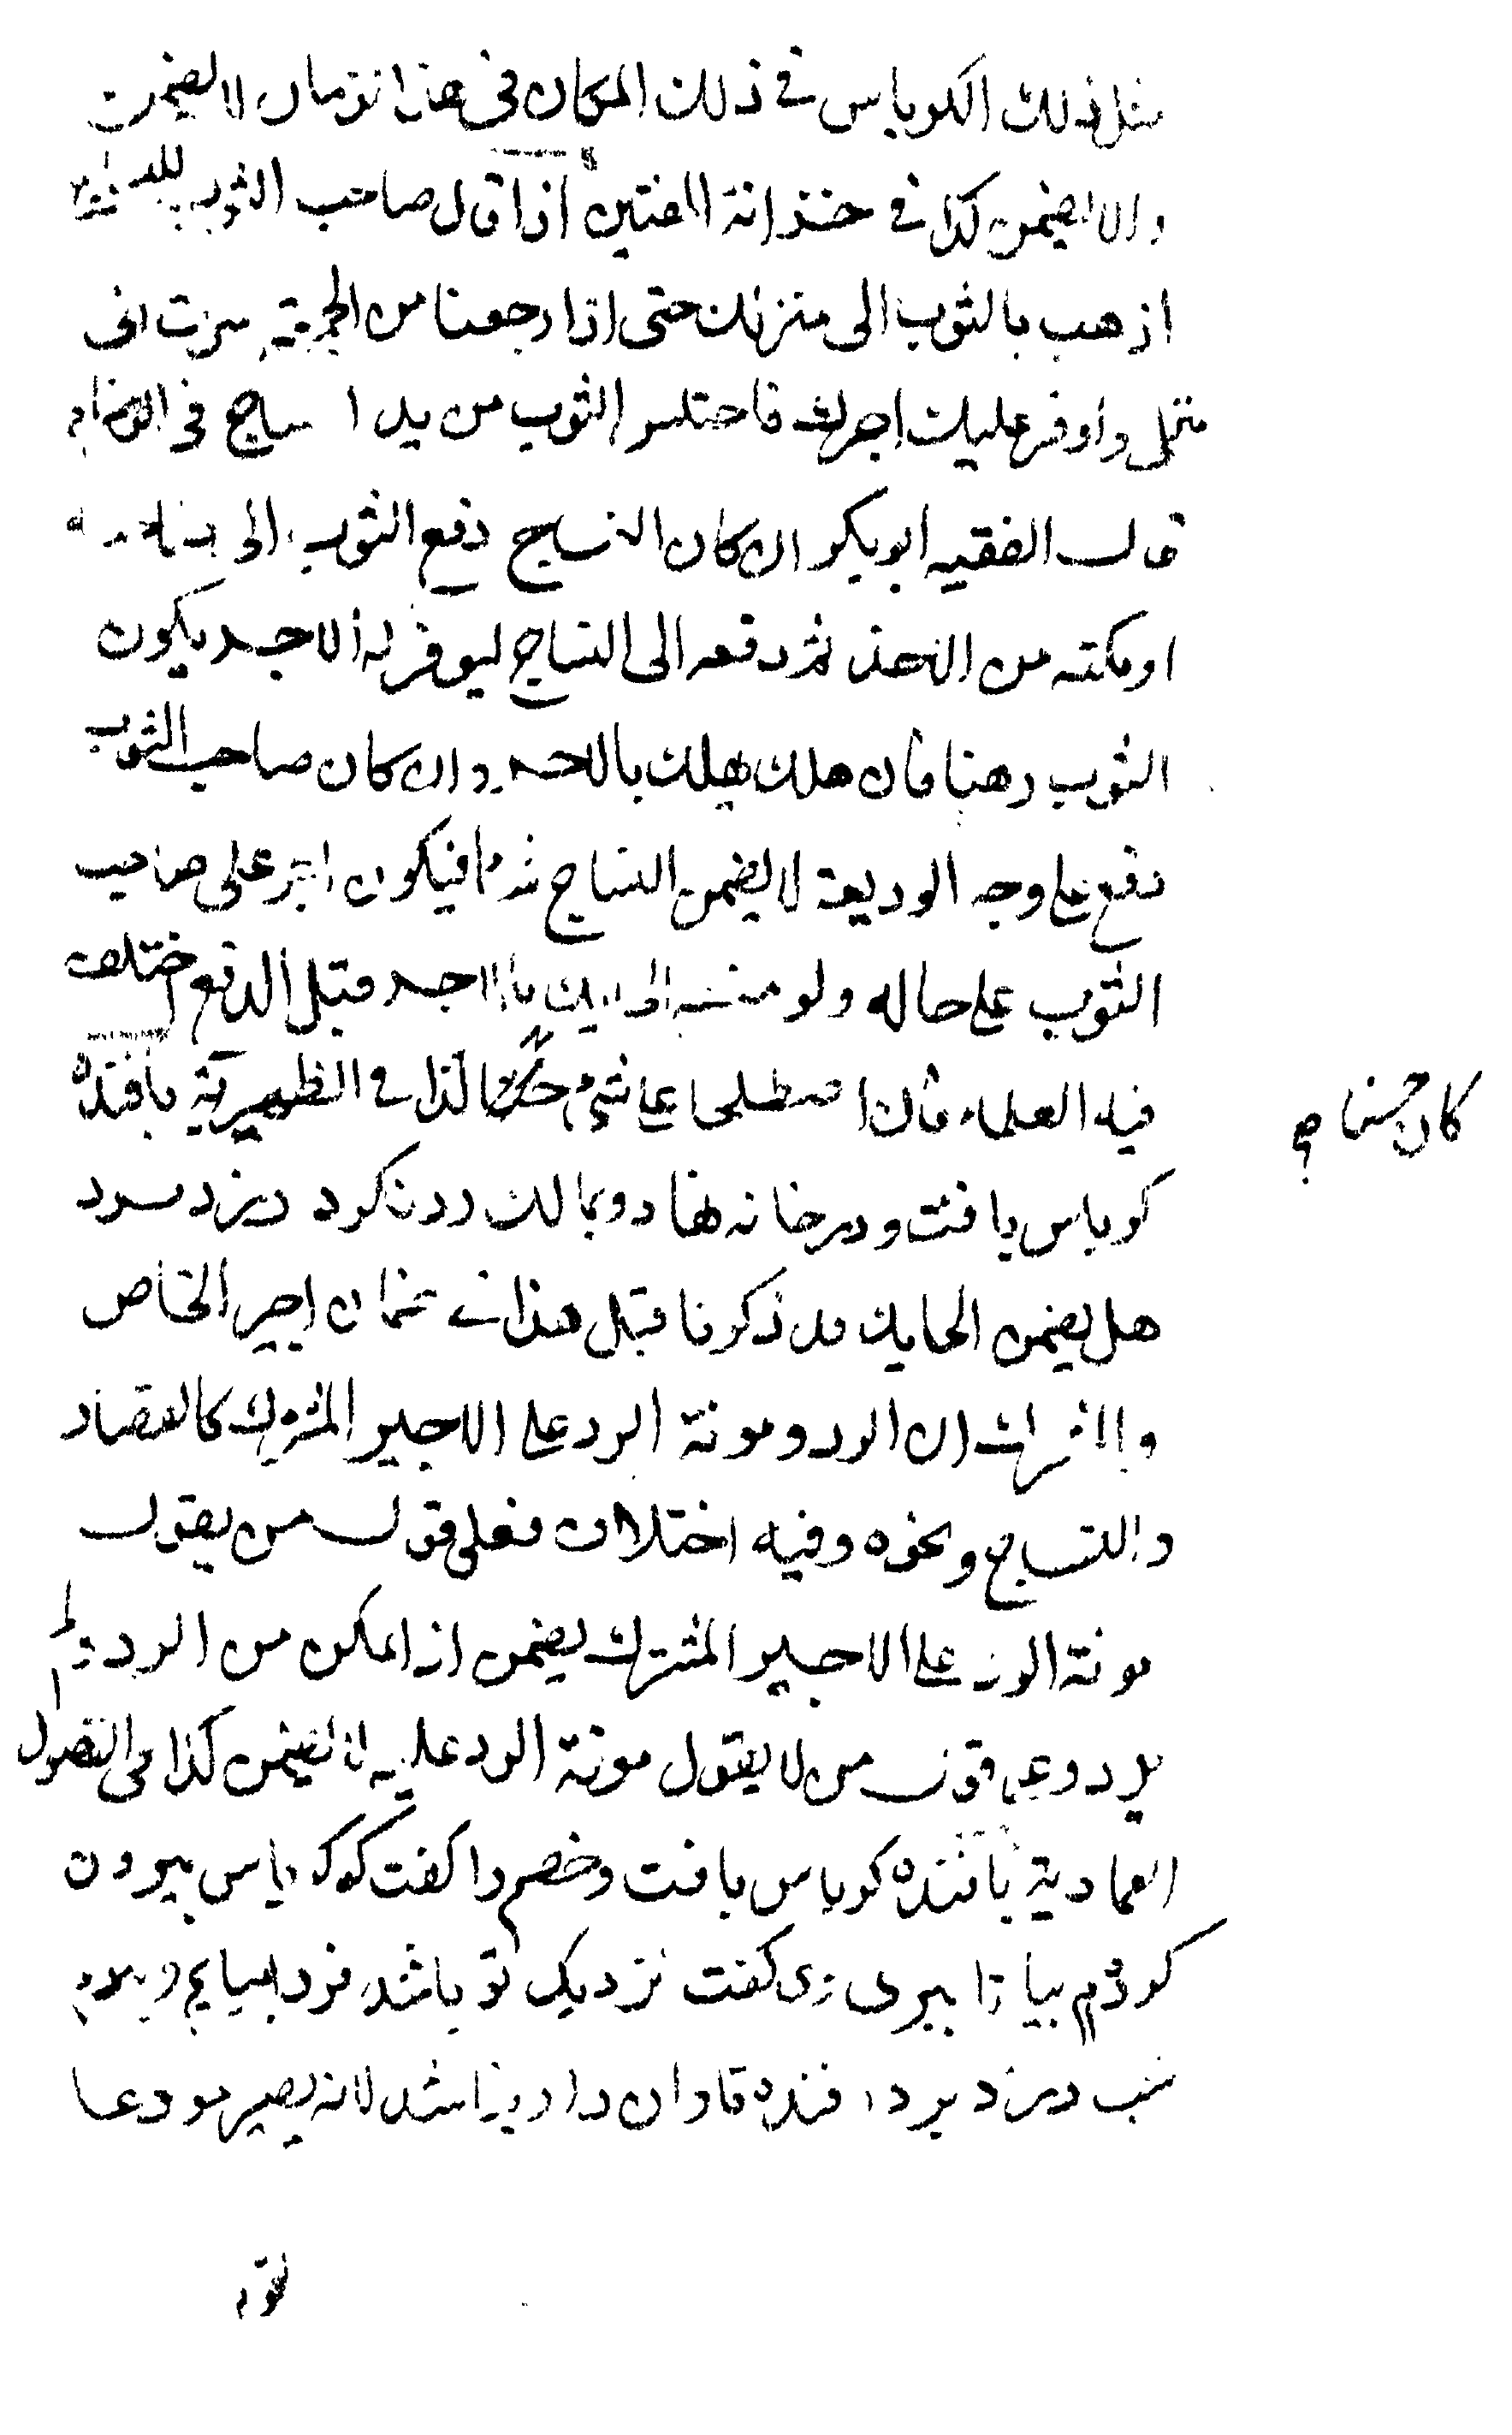 مثل ذلك الكرباس في ذلك المكان في هذا الزمان لا يضمن
والا يضمن كذا في خزانة المفتين اذا قال صاحب الثوب للنساج
اذهب بالثوب الى منزلك حتى اذا رجعنا من الجمعة سرت الى
منزلي واوفر عليك اجرك فاختلس الثوب من يد النساج في الزحام
قال الفقيه ابو بكر ان كان النساج دفع الثوب الى صاحبه
او مكنه من الاخذ ثم دفعه الى النساج ليوفر له الاجر يكون
الثوب رهنا فان هلك يهلك بالاجر وان كان صاحب الثوب
دفع على وجه الوديعة لا يضمن النساج فيكون اجره على صاحب
الثوب على حاله ولو منعه الحايك بالاجر قبل الدفع اختلف
فيه العلماء فان اصطلحا على شئ كان حسنا كذا في الظهيرية بافنده
كرباس بافت ودر خانه نهاد وبمالك رد نكرد دزد برد
هل يضمن الحايك قد ذكرنا قبل هذا في ضمان اجير الخاص
والمشترك ان الرد ومونة الرد على الاجير المشترك كالقصار
والنساج ونحوه وفيه اختلاف فعلى قول من يقول
مونة الرد على الاجير المشترك يضمن اذا امكن من الرد ولم
يرد وعلى قول من لا يقول مونة الرد عليه لا يضمن كذا في الفصول
العمادية بافنده كرباس بافت وخصم را كفت كه كرباس بيرون
كردم بيا تا ببرى وى كفت نزديك تو باشد فردا بيايم وببرم
شب دزد برد بافنده تاوان دار نباشد لانه يصير مودعا
كان حسنا صح